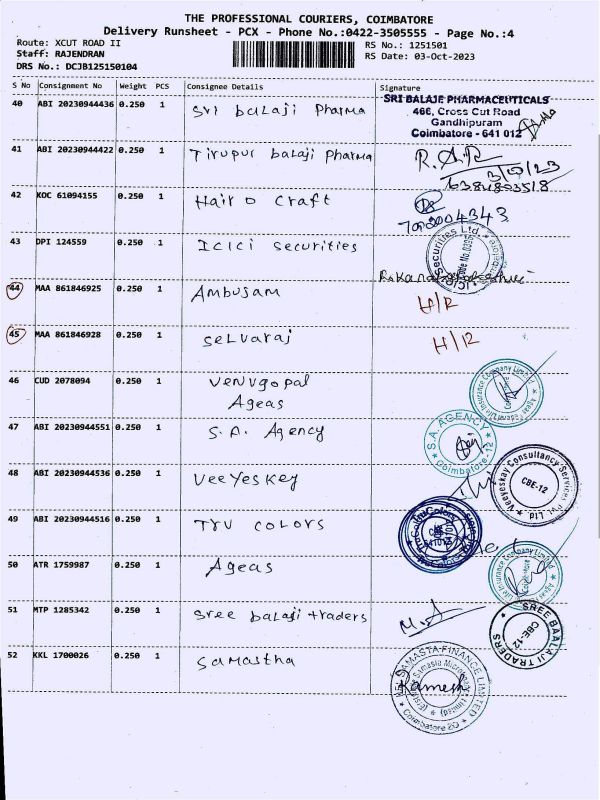 THE PROFESSIONAL COURIERS, COIMBATORE
Delivery Runsheet - PCX - Phone No.:0422-3505555 - Page No.:4
Route: XCUT ROAD II
RS No.: 1251501
Staff: RAJENDRAN
RS Date: 03-Oct-2023
DRS No.: DCJB125150104
S No Consignment No Weight PCS Consignee Details Signature
40 ABI 20230944436 0.250 1 Sri balaji Pharma
SRI BALAJE PHARMACEUTICALS
466, Cross Cut Road
Gandhipuram
Coimbatore - 641 012
41 ABI 20230944422 0.250 1 Tirupur balaji Pharma
3/10/23
42 KOC 61094155 0.250 1 Hair O Craft
43 DPI 124559 0.250 1 ICICI Securities
Securities Ltd.
44 MAA 861846925 0.250 1 Ambujam H/R
45 MAA 861846928 0.250 1 Selvaraj H/R
46 CUD 2078094 0.250 1 Venugopal
Ageas
Insurance Company Limited
47 ABI 20230944551 0.250 1 S.A. Agency
S.A. AGENCY
Coimbatore-12
48 ABI 20230944536 0.250 1 VeeYesKey
Veeyeskay Consultancy Services Pvt. Ltd.
CBE-12
49 ABI 20230944516 0.250 1 TRU COLORS
50 ATR 1759987 0.250 1 Ageas
Insurance Company Limited
51 MTP 1285342 0.250 1 Sree balaji traders
SREE BAALAJI TRADERS
CBE-12
52 KKL 1700026 0.250 1 Samastha
SAMASTA FINANCE LIMITED
Ramesh
Coimbatore